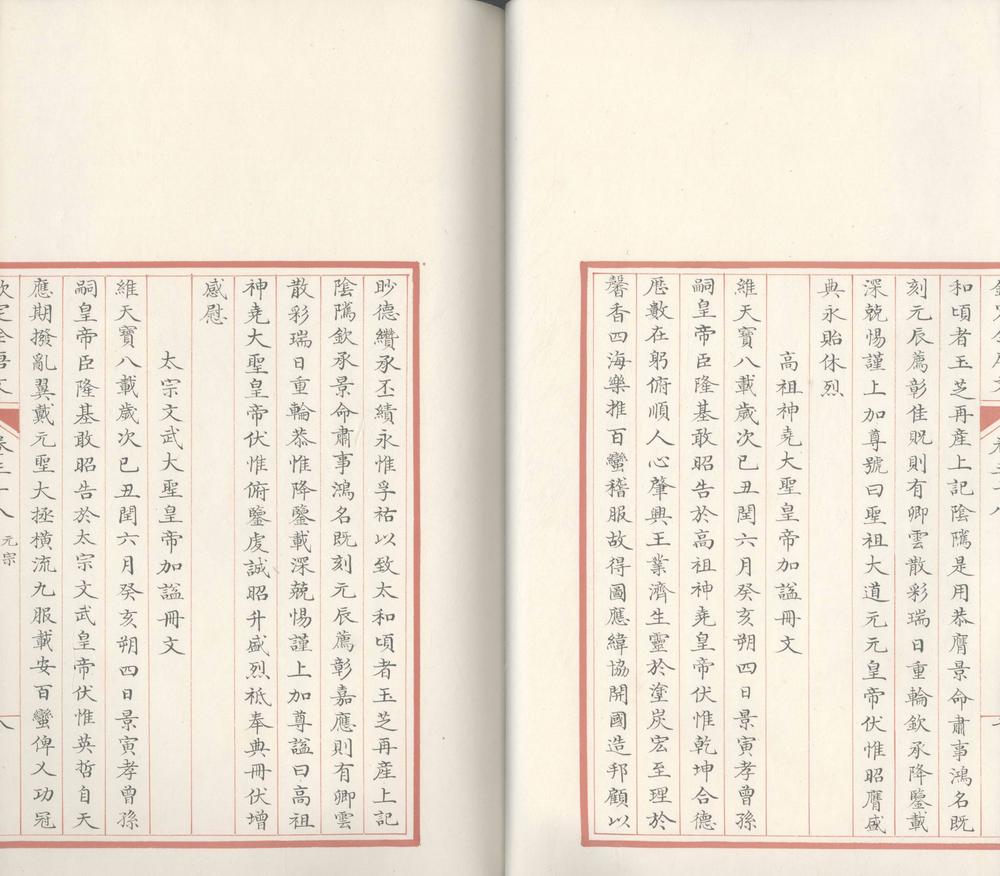 和頃者玉芝再産上記陰隲是用恭膺景命肅事鴻名既
刻元辰薦彰佳貺則有卿雲散彩瑞日重輪欽承降鑒載
深兢惕謹上加尊號曰聖祖大道元元皇帝伏惟昭膺盛
典永貽休烈
高祖神堯大聖皇帝加諡冊文
維天寶八載歲次已丑閏六月癸亥朔四日景寅孝曾孫
嗣皇帝臣隆基敢昭告於高祖神堯皇帝伏惟乾坤合德
厯數在躬俯順人心肇興王業濟生靈於塗炭宏至理於
馨香四海樂推百蠻稽服故得圖應緯協開國造邦顧以
眇德纘承丕績永惟孚祐以致太和頃者玉芝再産上記
陰隲欽承景命肅事鴻名既刻元辰薦彰嘉應則有卿雲
散彩瑞日重輪恭惟降鑒載深兢惕謹上加尊諡曰高祖
神堯大聖皇帝伏惟俯鑒虔誠昭升盛烈祗奉典冊伏增
感慰
太宗文武大聖皇帝加諡冊文
維天寶八載歲次已丑閏六月癸亥朔四日景寅孝曾孫
嗣皇帝臣隆基敢昭告於太宗文武皇帝伏惟英哲自天
應期撥亂翼戴元聖大拯橫流九服載安百蠻俾乂功冠
欽定全唐文 卷三十八 元宗 八